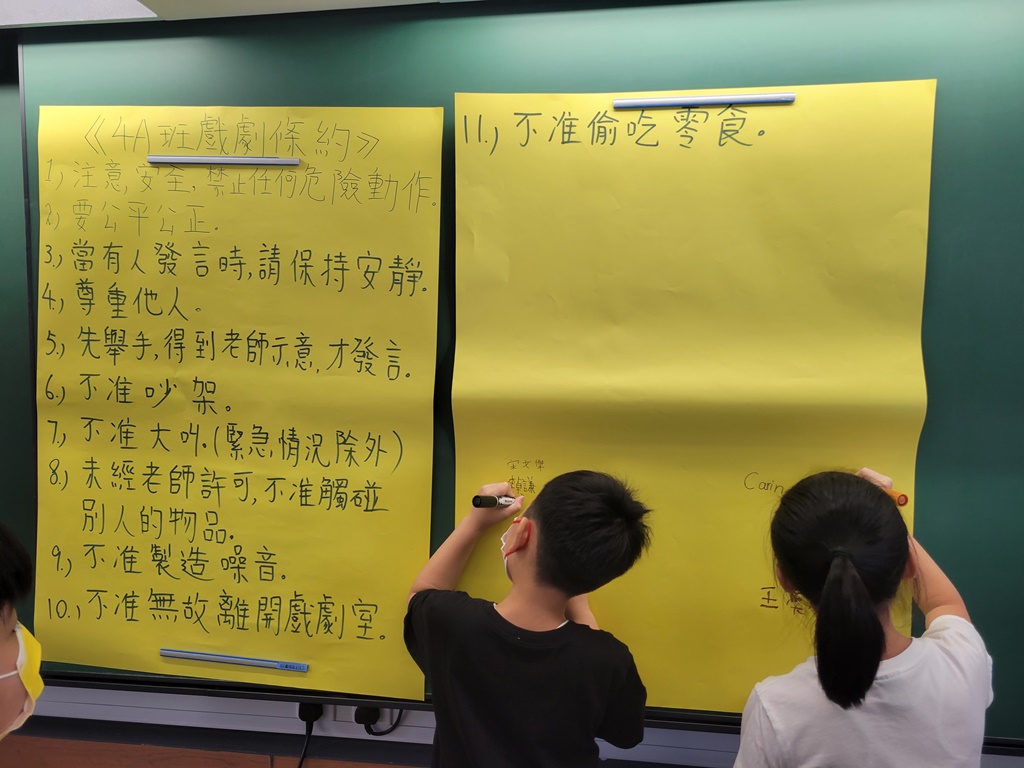 《4A班戲劇條約》
1.) 注意安全,禁止任何危險動作。
2.) 要公平公正.
3.) 當有人發言時,請保持安靜.
4.) 尊重他人。
5.) 先舉手,得到老師示意,才發言。
6.) 不准吵架。
7.) 不准大叫.(緊急情況除外)
8.) 未經老師許可,不准觸碰
別人的物品.
9.) 不准製造噪音.
10.) 不准無故離開戲劇室.
11.) 不准偷吃零食。
Carin
王